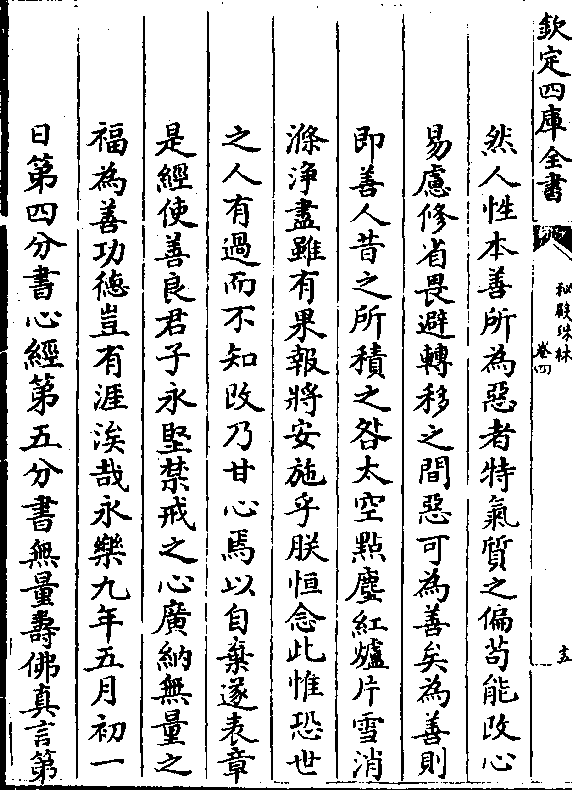 欽定四庫全書
秘殿珠林
卷四
然人性本善所為惡者特氣質之偏苟能改心
易慮修省畏避轉移之間惡可為善矣為善則
即善人昔之所積之咎太空點塵紅爐片雪消
滌淨盡雖有果報將安施乎朕恒念此惟恐世
之人有過而不知改乃甘心焉以自棄遂表章
是經使善良君子永堅禁戒之心廣納無量之
福為善功德豈有涯涘哉永樂九年五月初一
日第四分書心經第五分書無量壽佛真言第